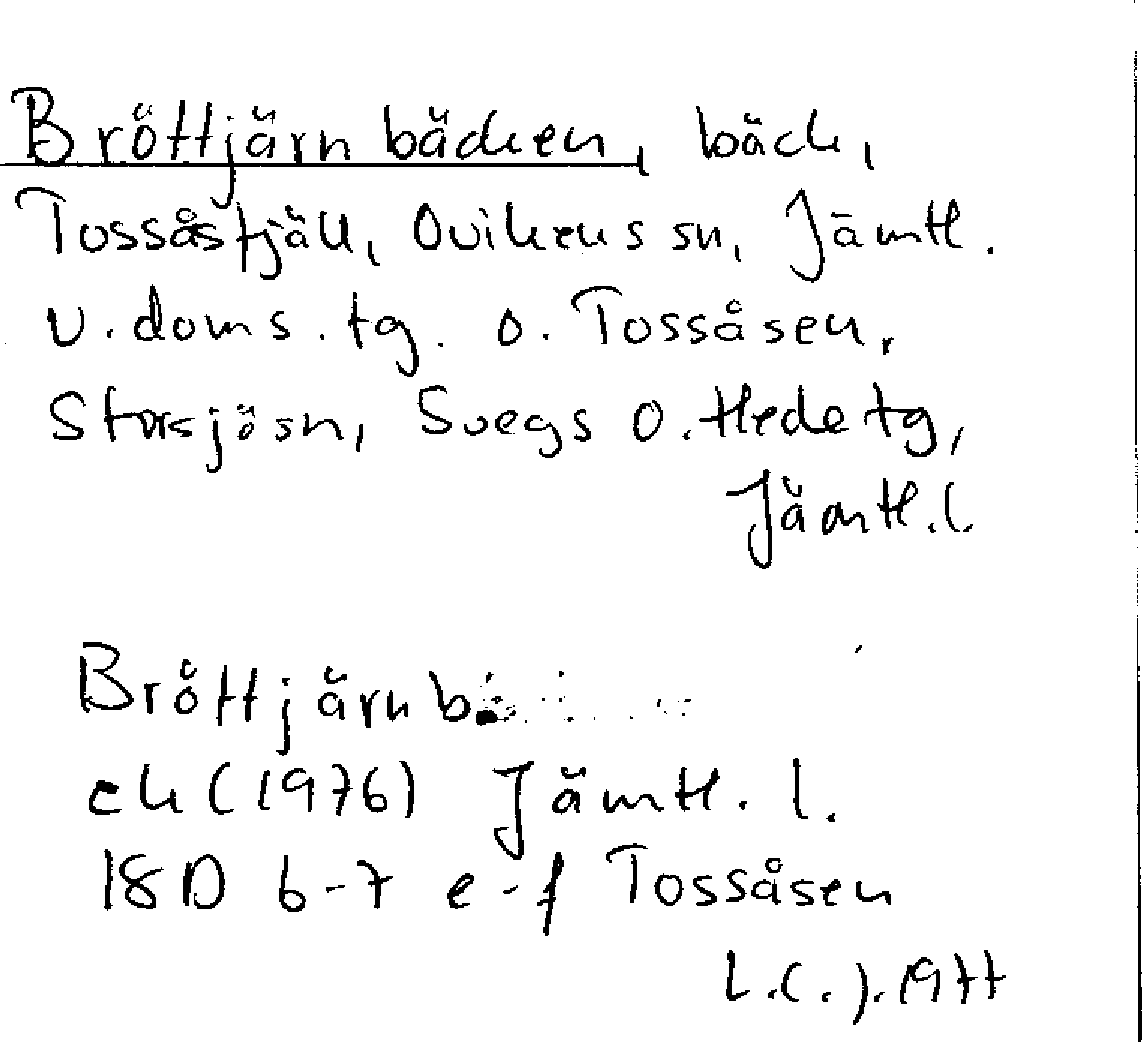 Bröttjärnbäcken, bäck,
Tossåsfjäll, Ovikens sn, Jämtl.
v. doms. tg. o. Tossåsen,
Storsjö sn, Svegs o. Hede tg,
Jämtl. l.
Bröttjärnb
ek (1976) Jämtl. l.
18D 6-7 e-f Tossåsen
L.C.J. 1977